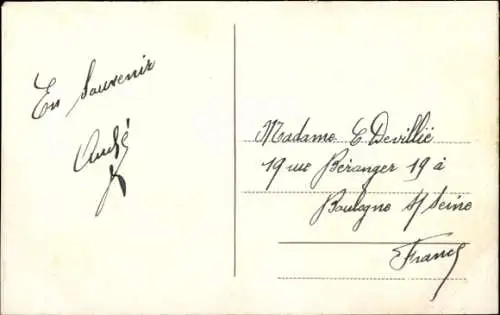 En Souvenir
André
Madame C Devillié
19 rue Béranger 19 à
Boulogne s/ Seine
France